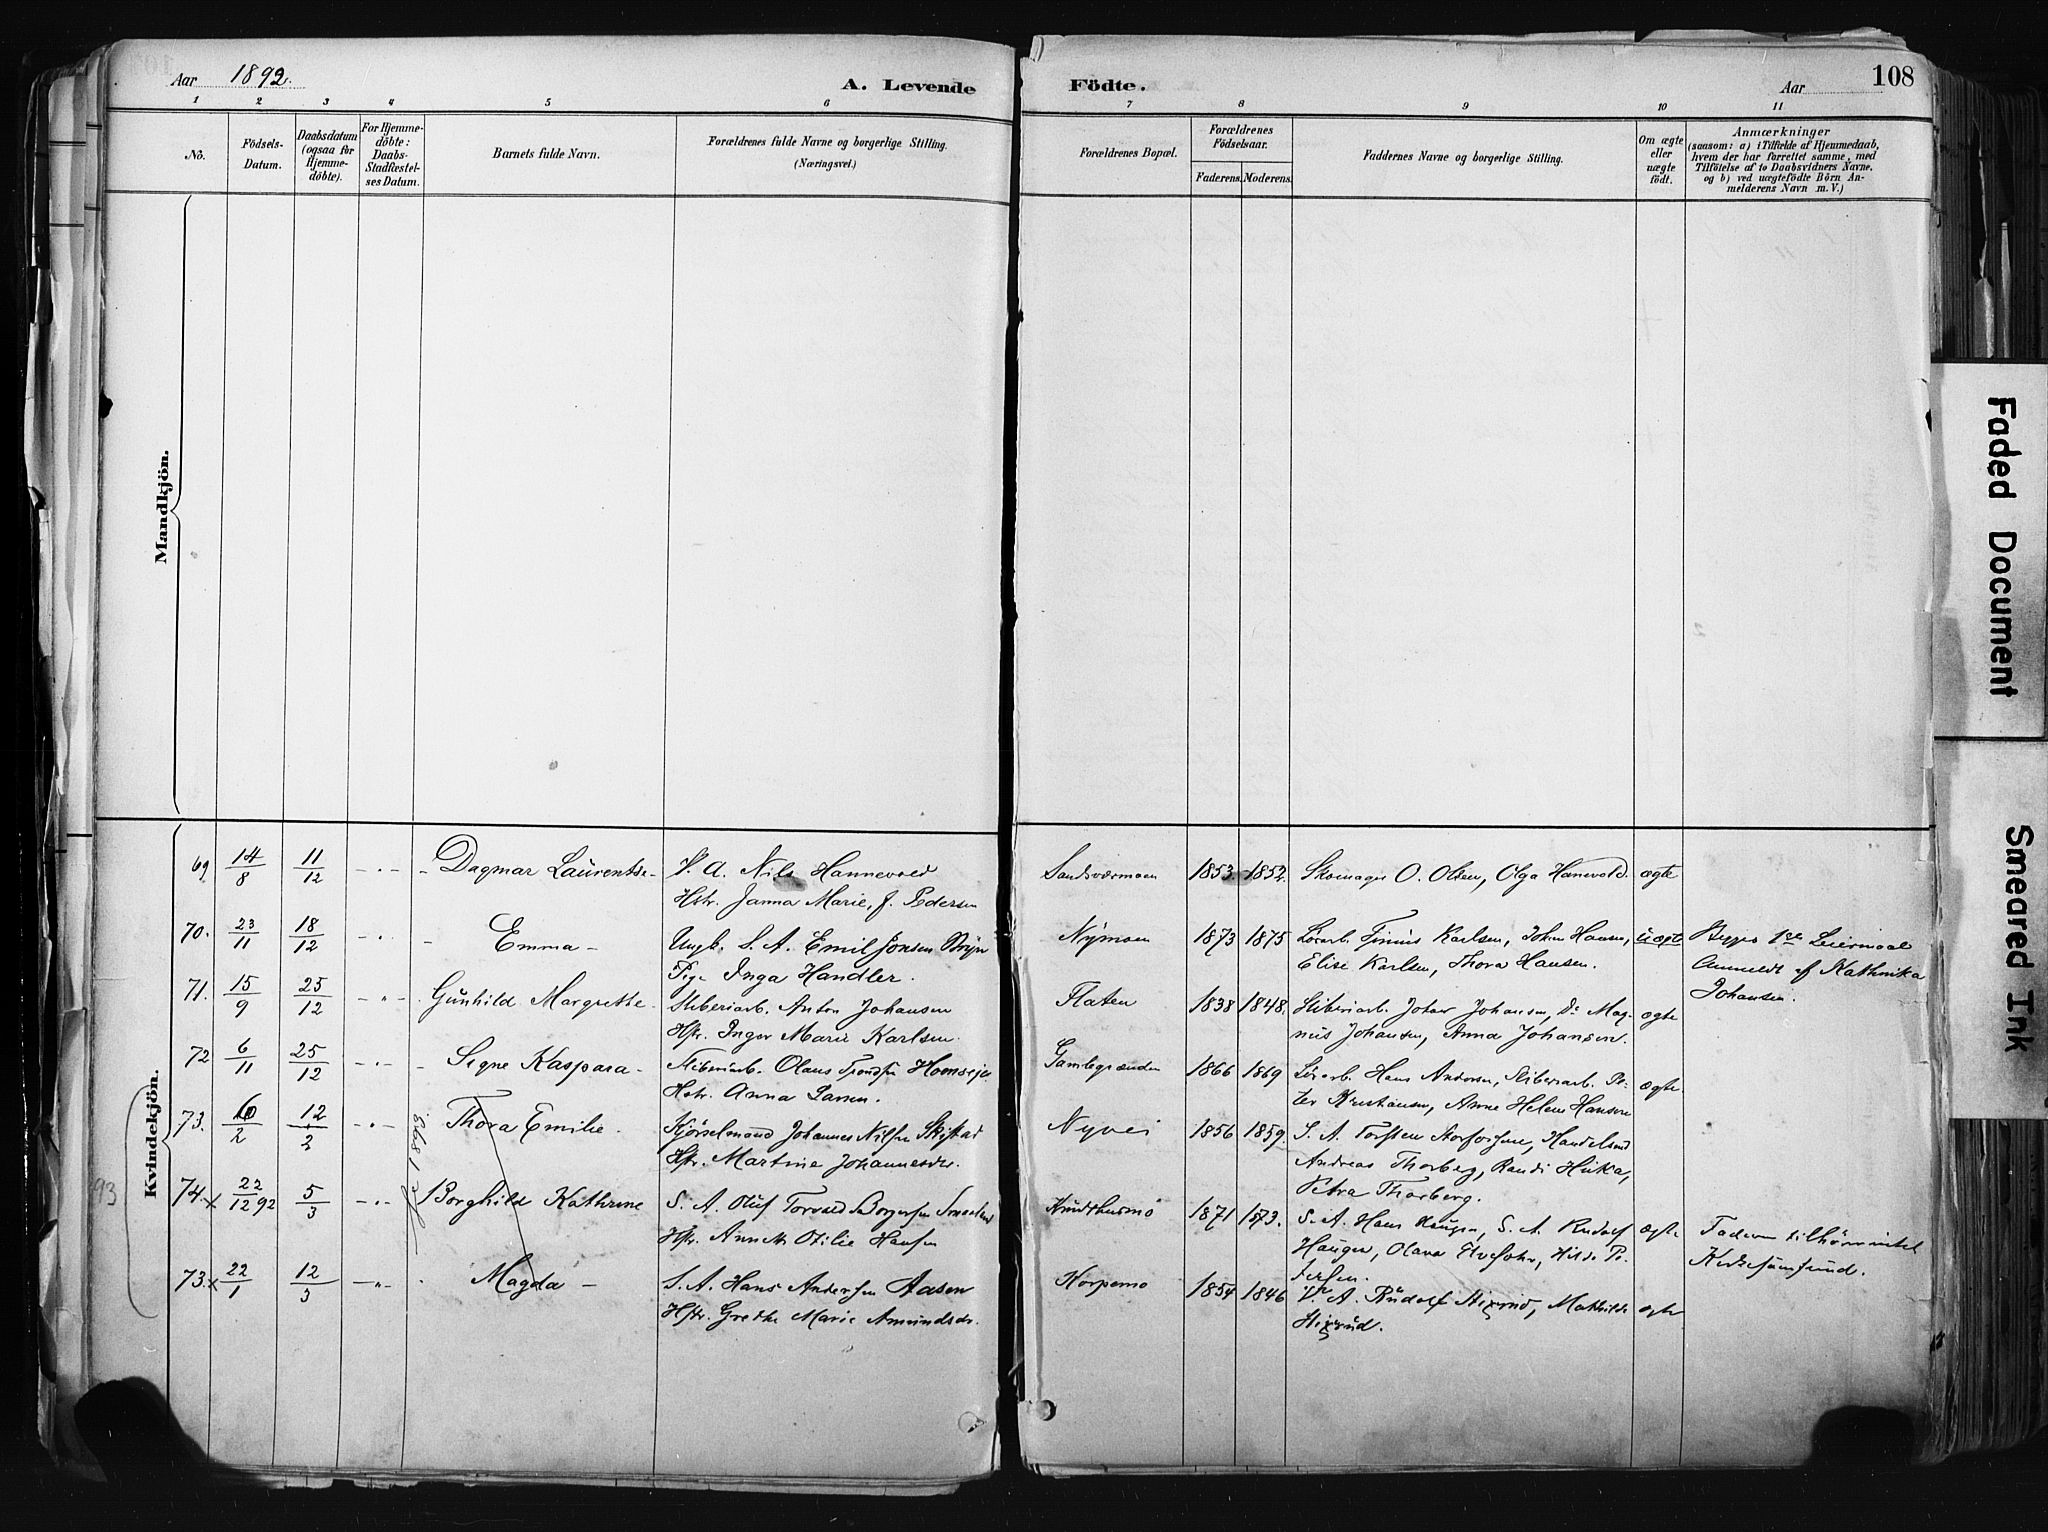 Aar 1892.
A. Levende Födte.
Aar
108
1 2 3 4 5 6 7 8 9 10 11
No.
Födsels-
Datum.
Daabsdatum
(ogsaa for
Hjemme-
döbte).
For Hjemme-
döbte:
Daabs-
Stadfæstel-
ses Datum.
Barnets fulde Navn.
Forældrenes fulde Navne og borgerlige Stilling.
(Næringsvei.)
Forældrenes Bopæl.
Forældrenes
Födselsaar.
Faderens. Moderens.
Faddernes Navne og borgerlige Stilling.
Om ægte
eller
uægte
födt.
Anmærkninger
(saasom: a) i Tilfælde af Hjemmedaab,
hvem der har forrettet samme, med
Tilföielse af to Daabsvidners Navne.
og b) ved uægtefödte Börn An-
melderens Navn m.V.)
Mandkjön.
Kvindekjön.
69 14/8 11/12 Dagmar Laurentse V. A. Nils Hannevold Sandsværmoen 1853 1852. Skomager O. Olsen, Olga Hanevold. ægte
Hstr. Janna Marie, f. Pedersen
70. 23/11 18/12 Emma Ungk. S. A. Emil Jonsen Nymoen 1873 1875 Karlsen, Johan Hansen, uægte
Pige Inga Handler. Elise Karlsen, Thora Hansen. Anmeldt af Kathinka
Johansen.
71. 15/9 25/12 Gunhild Margrethe Sliberiarb. Anton Johansen Flaten 1838 1848. Sliberiarb. Johan Johansen, Do Mag- ægte
Hstr. Inger Marie Karlsen. nus Johansen, Anna Johansen.
72 6/11 25/12 Signe Kaspara Sliberiarb. Olaus Gamlegrænden 1866 1869 Hans Andersen, Sliberiarb. Pe- ægte
Hstr. Anna ter Kristiansen, Anne Helene Hansen
73. 6/2 12/2 Thora Emilie Kjørselmand Johannes Nilsen Nyvei 1856 1859. S. A. Torsten
Hstr. Martine Johannesdr. Andreas Thorberg, Randi
Petra Thorberg.
93
74. x 22/12 92 5/3 Borghild Kathrine S. A. Oluf Torvald 1871 1873. S. A. Hans Haugen, S. A. Rudolf ægte Faderen tilhører intet
Hstr. Annette Otilie Hansen Haugen, Olava Hilde Pe- Kirkesamfund.
tersen.
73. x 22/1 12/3 Magda S. A. Hans Andersen Aasen Korpemo 1854 1846 V. A. Rudolf Mathilde ægte
Hstr. Grethe Marie Amundsdr.
Faded Document
Smeared Ink